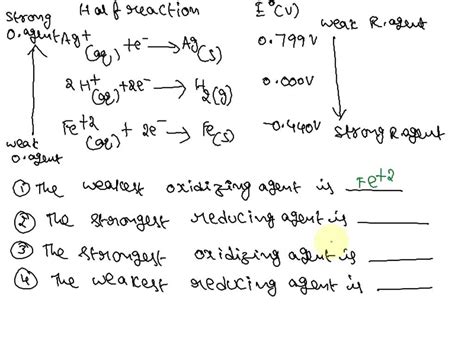 Strong Half reaction E°(V) weak R.agent
O.agent Ag+(aq) + e- → Ag(s) 0.799V
2H+(aq) + 2e- → H2(g) 0.000V
Fe+2(aq) + 2e- → Fe(s) -0.440V Strong R.agent
weak
O.agent
① The weakest oxidizing agent is Fe+2
② The strongest reducing agent is ______
③ The strongest oxidizing agent is ______
④ The weakest reducing agent is ______